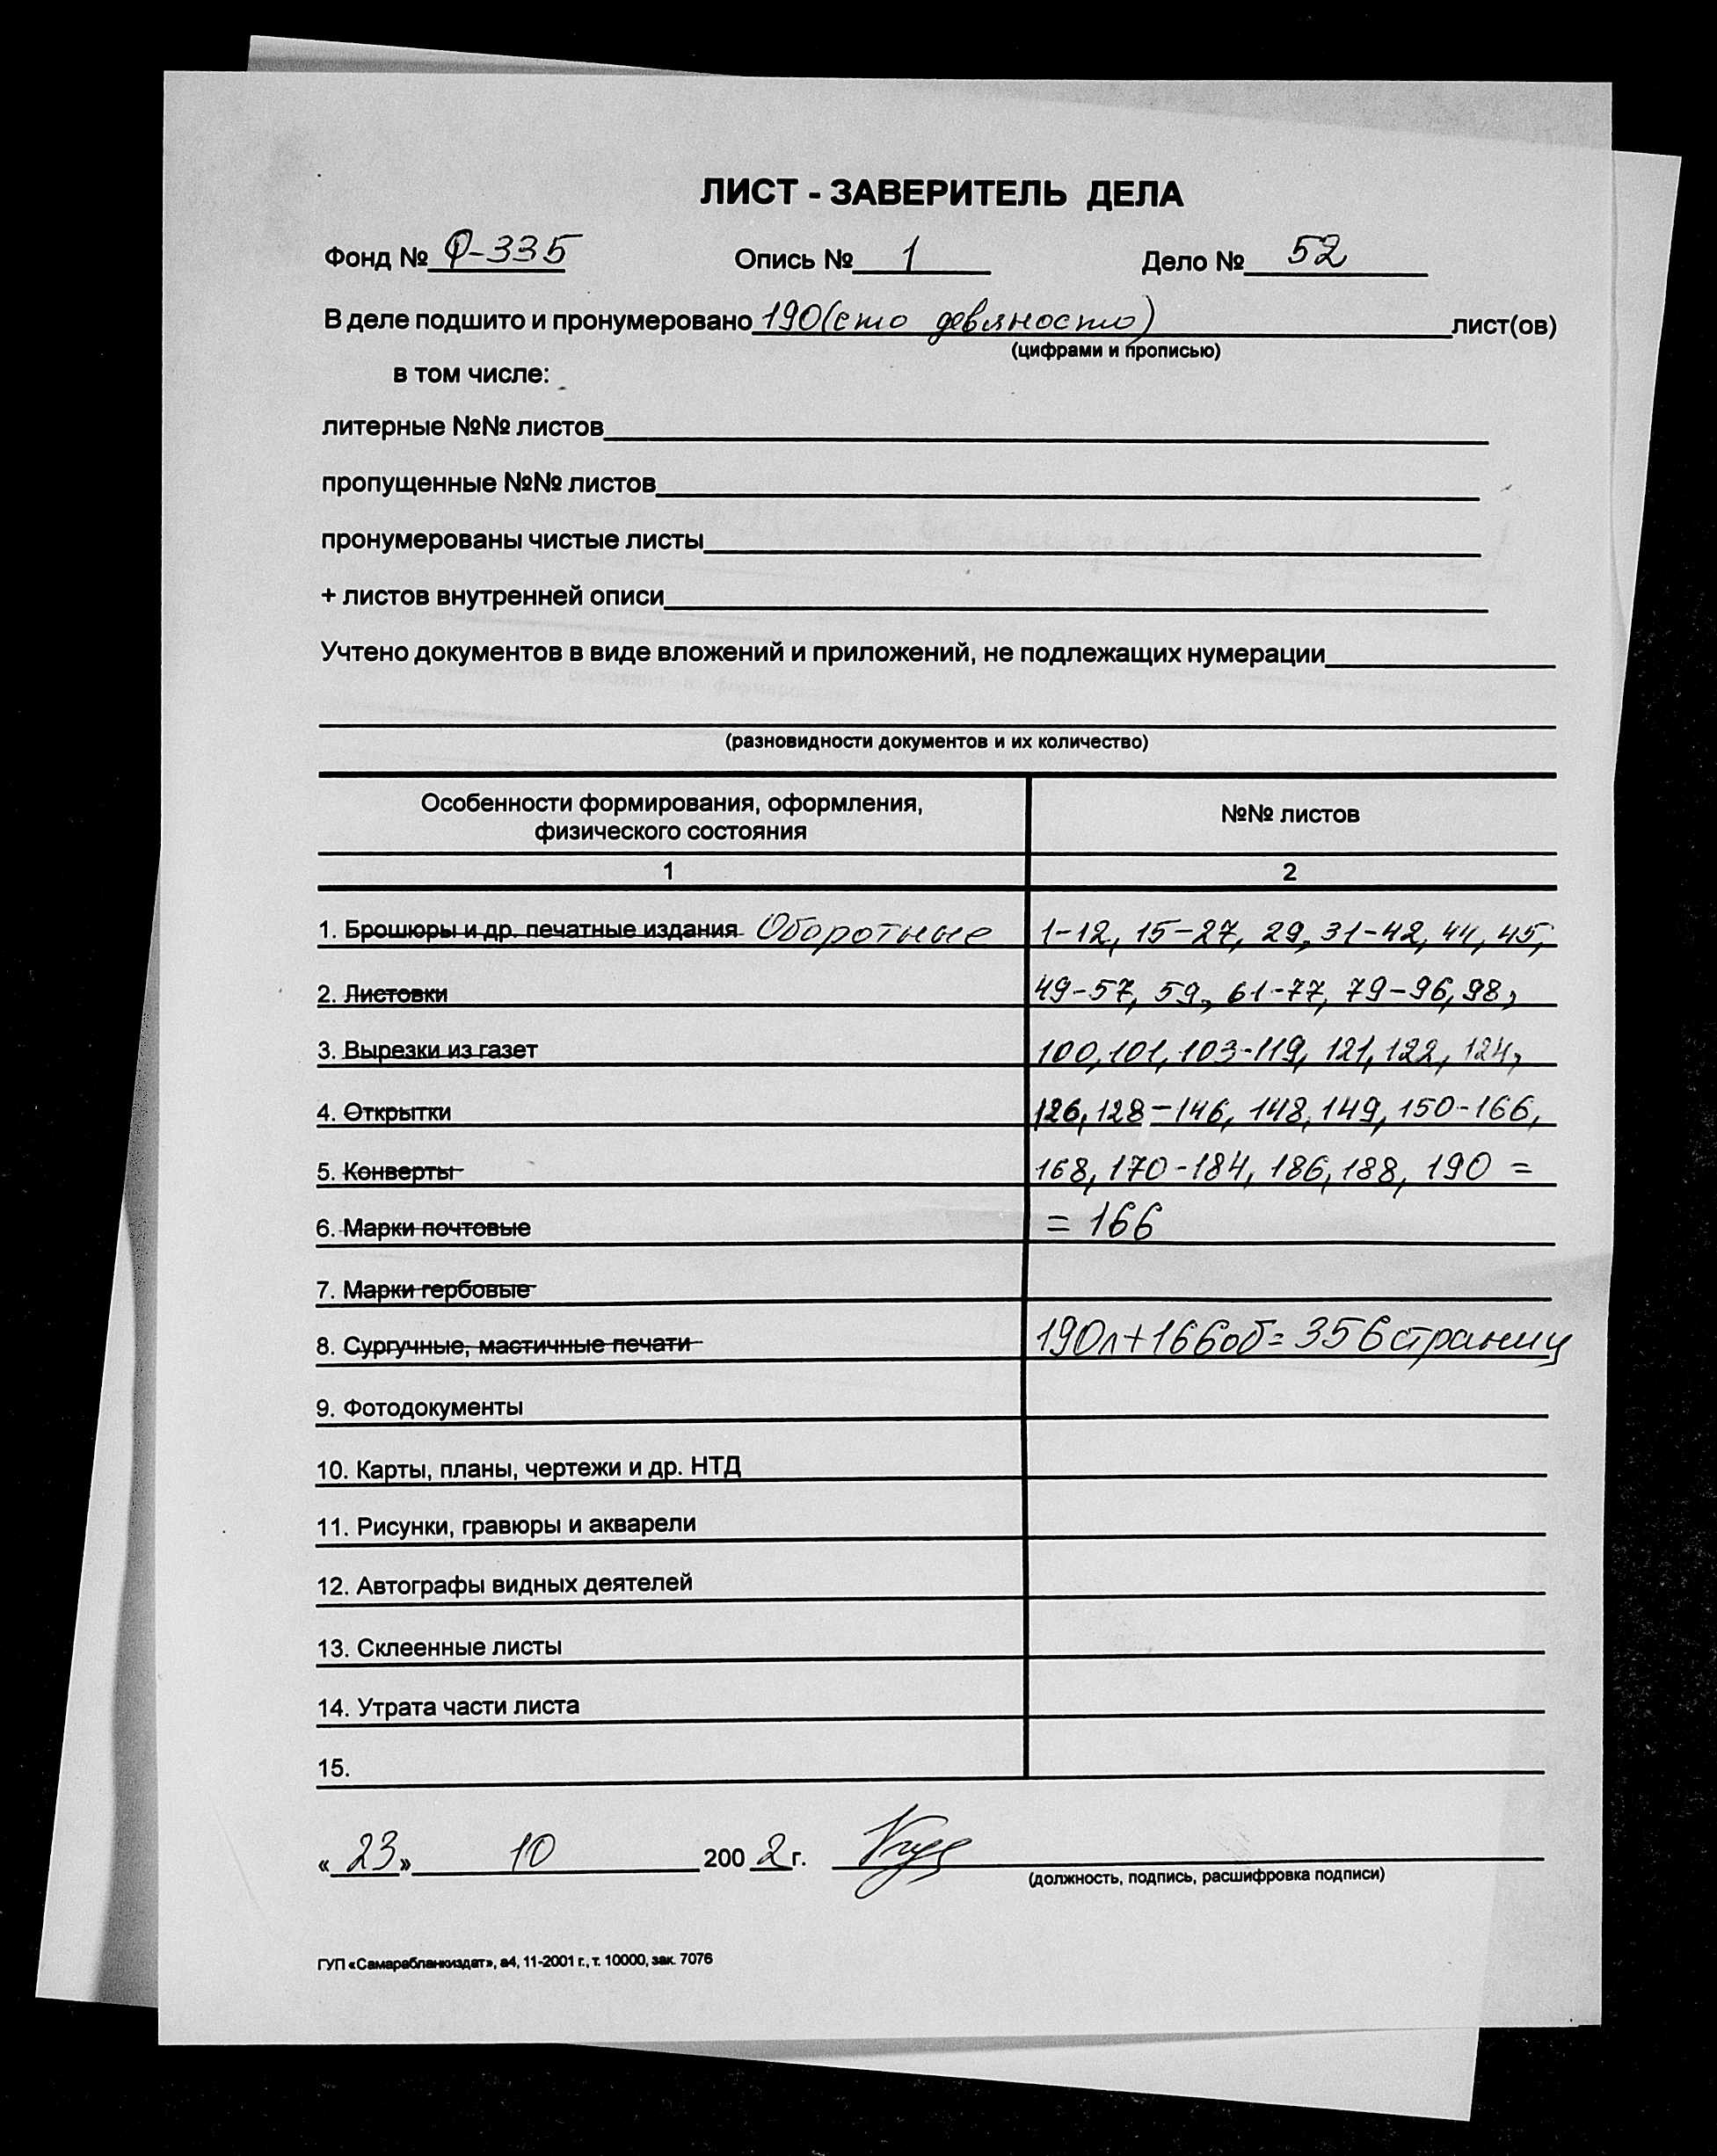 ЛИСТ - ЗАВЕРИТЕЛЬ ДЕЛА
Фонд № Ф-335 Опись № 1 Дело № 52
В деле подшито и пронумеровано 190 (сто девяносто) лист(ов)
(цифрами и прописью)
в том числе:
литерные №№ листов
пропущенные №№ листов
пронумерованы чистые листы
+ листов внутренней описи
Учтено документов в виде вложений и приложений, не подлежащих нумерации
(разновидности документов и их количество)
Особенности формирования, оформления, №№ листов
физического состояния
1 2
1. Брошюры и др. печатные издания Оборотные 1-12, 15-27, 29, 31-42, 44, 45,
2. Листовки 49-57, 59, 61-77, 79-96, 98,
3. Вырезки из газет 100, 101, 103-119, 121, 122, 124,
4. Открытки 126, 128-146, 148, 149, 150-166,
5. Конверты 168, 170-184, 186, 188, 190 =
6. Марки почтовые = 166
7. Марки гербовые
8. Сургучные, мастичные печати 190л+166об=356 страниц
9. Фотодокументы
10. Карты, планы, чертежи и др. НТД
11. Рисунки, гравюры и акварели
12. Автографы видных деятелей
13. Склеенные листы
14. Утрата части листа
15.
«23» 10 2002г.
(должность, подпись, расшифровка подписи)
ГУП «Самарабланкиздат», а4, 11-2001 г., т. 10000, зак. 7076